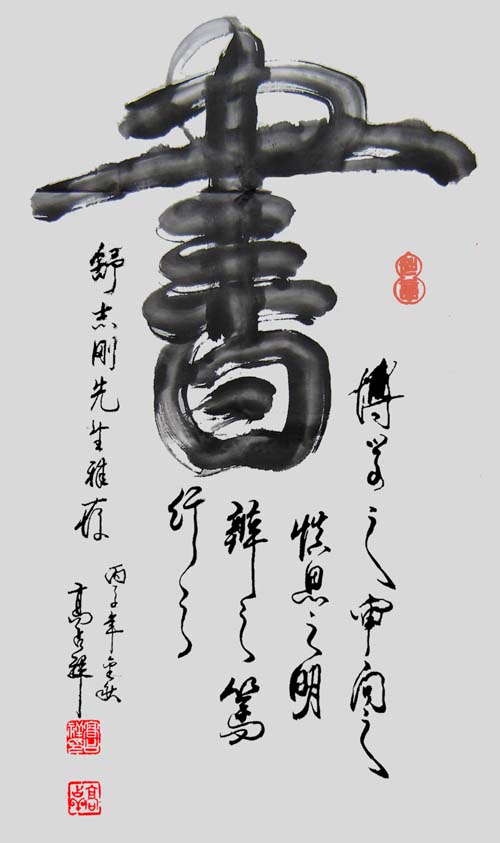 書
博学之审问之
慎思之明
辨之篤
行之
舒志刚先生雅存
丙子年金秋
高占祥